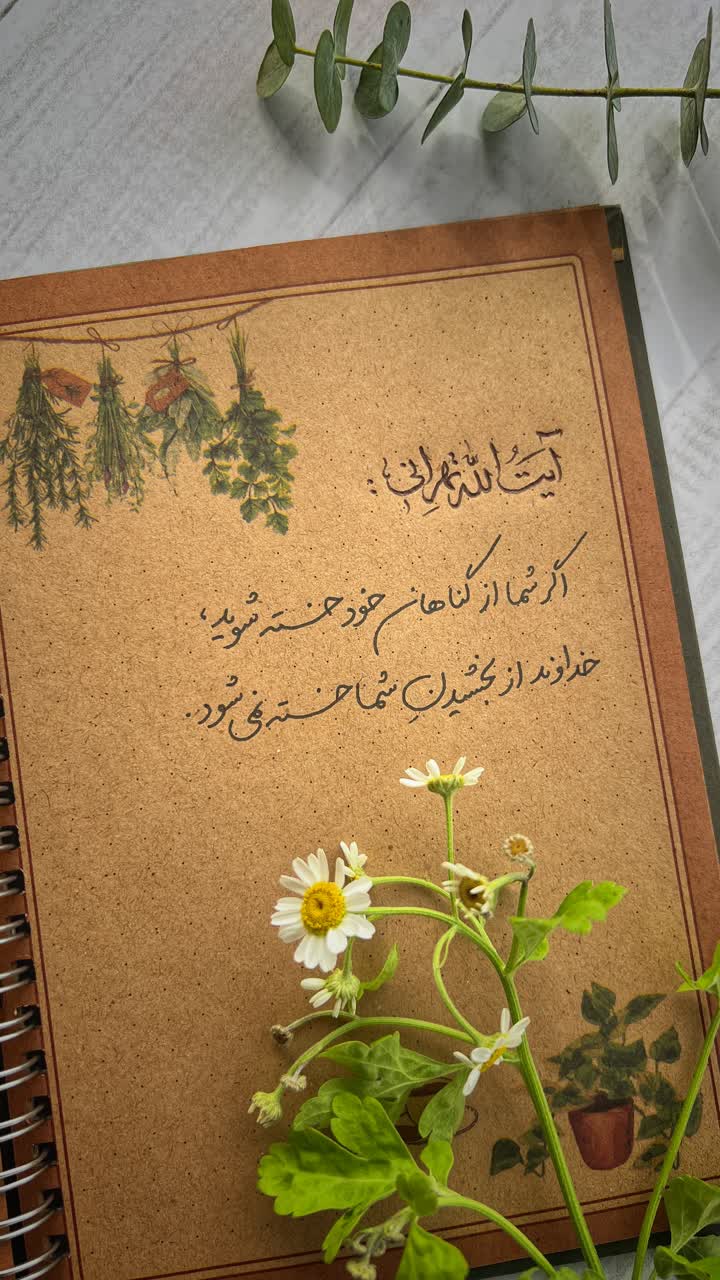 آیَتُ اللّه تهرانی:
اگر شما از گناهان خود خسته شوید،
خداوند از بخشیدنِ شما خسته نمی شود..